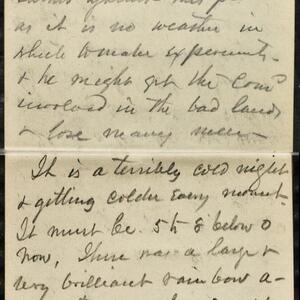 as it is no weather in
which to make experiments
& he might get the Com'd
involved in the bad lands
& lose many men –
It is a terribly cold night
& getting colder every moment.
It must be 5 to 8 below 0
now. There was a large &
very brilliant rainbow a-